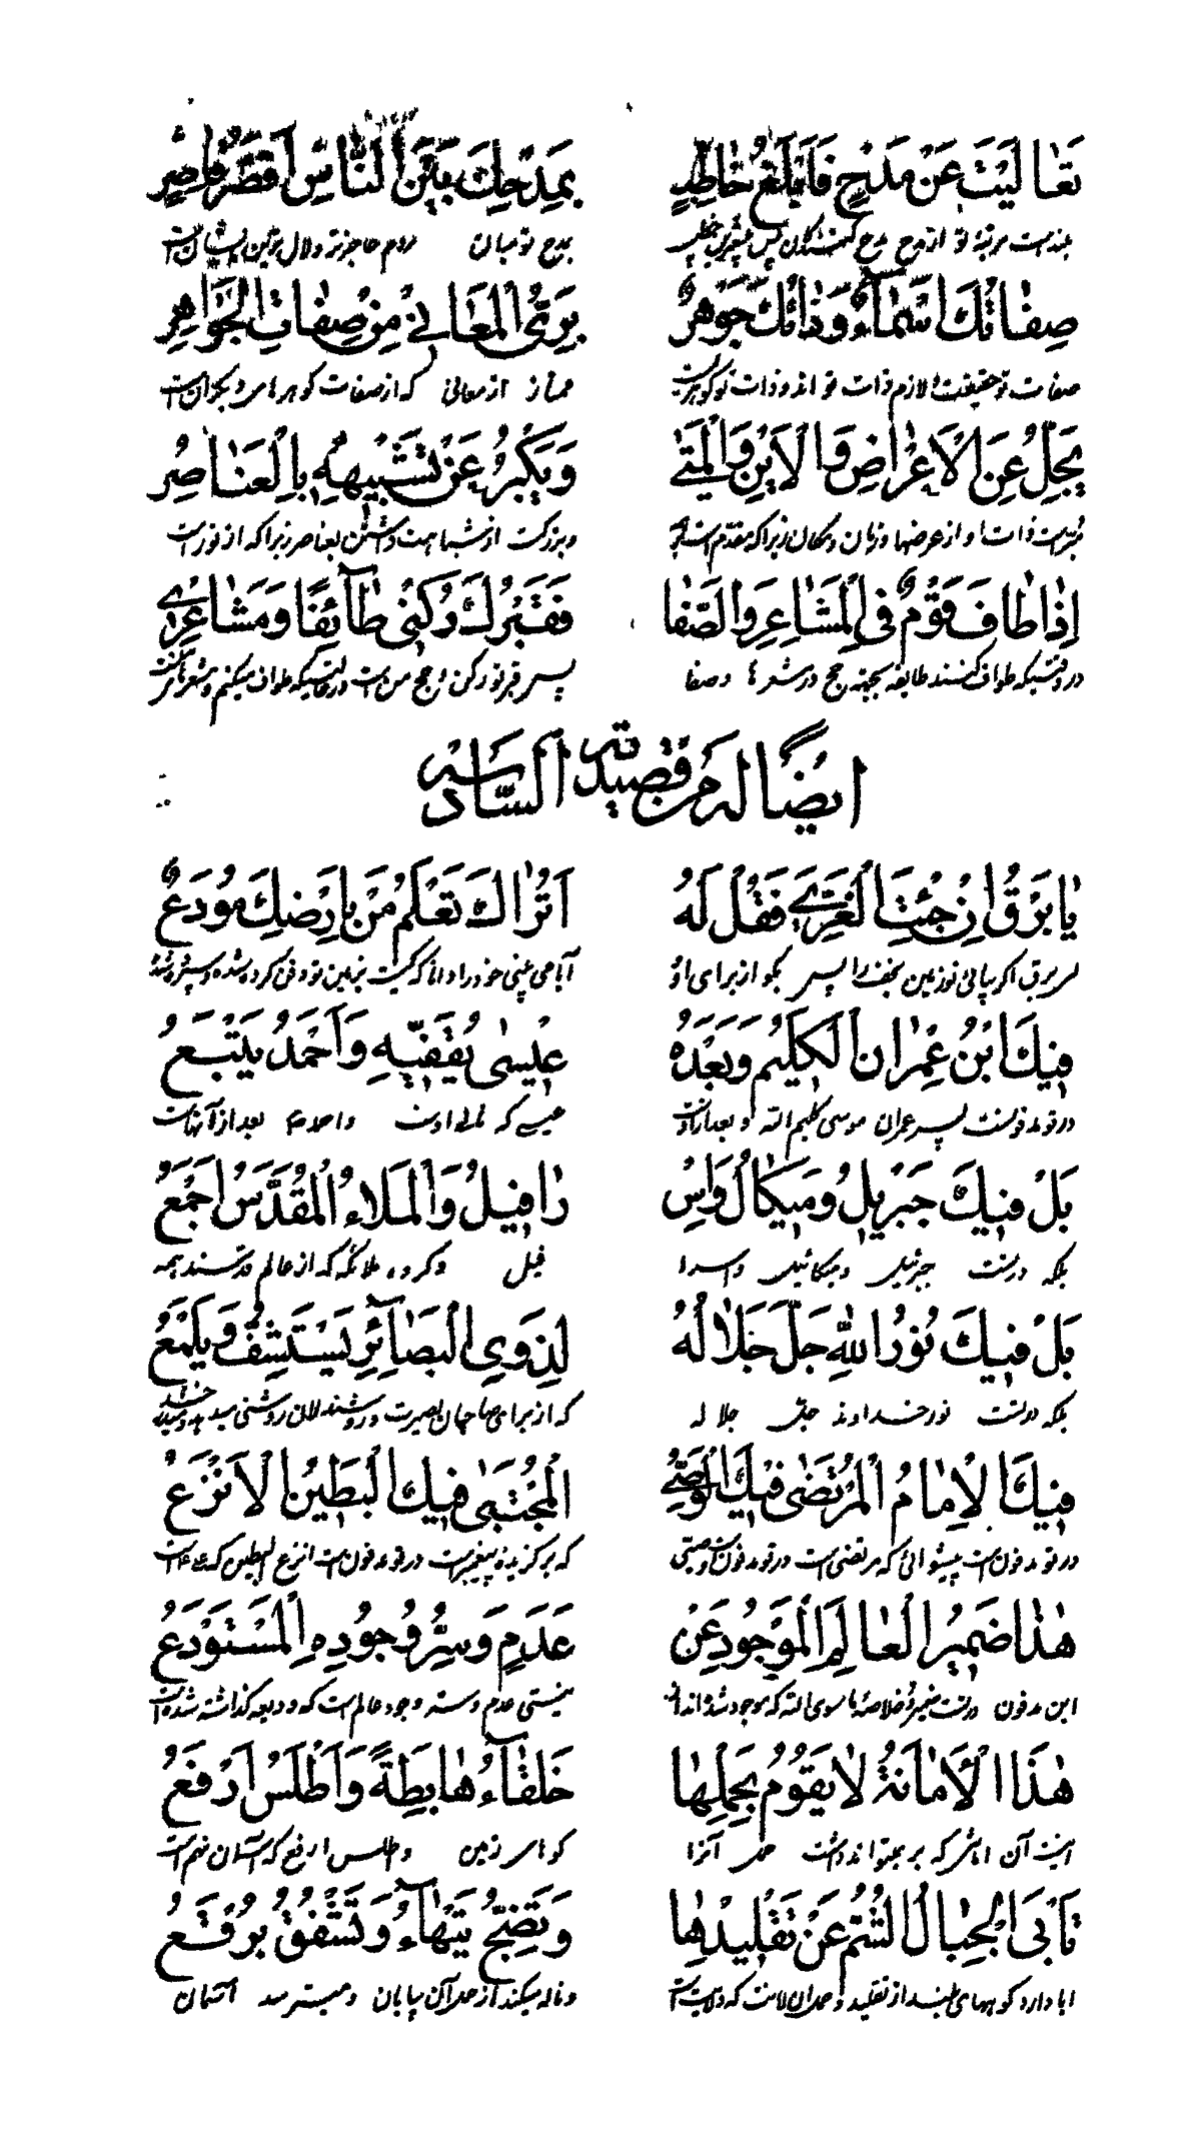 تَعَالَيْتَ عَنْ مَدْحٍ فَأَبْلَغُ خَاطِبٍ بِمَدْحِكَ بَيْنَ النَّاسِ أَقْصَرُ قَاصِرٍ
بلند است مرتبهٔ تو از مدح مدح کنندگان پس بمدح تو میان مردم عاجزتر و لال ترین ایشان است
صِفَاتُكَ أَسْمَاءٌ وَذَاتُكَ جَوْهَرٌ بَرِيُّ الْمَعَانِي مِنْ صِفَاتِ الْجَوَاهِرِ
صفات تو حقیقت لازم ذات تو اند و ذات تو گوهریست ممتاز از معانی که از صفات گوهرهای دیگران است
يَجِلُّ عَنِ الْأَعْرَاضِ وَالْأَيْنِ وَالْمَتَى وَيَكْبُرُ عَنْ تَشْبِيهِهِ بِالْعَنَاصِرِ
ذات او از عرضها و زمان و مکان زیرا که مقدم است و بزرگست از شباهت داشتن بعناصر زیرا که از نور است
إِذَا طَافَ قَوْمٌ فِي الْمَشَاعِرِ وَالصَّفَا فَقَبْرُكَ رُكْنِي طَائِفًا وَمَشَاعِرِي
در وقتیکه طواف کنند طایفه بجهة حج در مشعرها و صفا پس قبر تو رکن و حج من است در حالتیکه طواف میکنم و مشعرهای
ايضًا له من قصيدته السادسه
يَا بَرْقُ إِنْ جِئْتَ الْغَرِيَّ فَقُلْ لَهُ أَتُرَاكَ تَعْلَمُ مَنْ بِأَرْضِكَ مُودَعٌ
ای برق اگر بیائی تو زمین نجف را پس بگو از برای او آیا می بینی خود را دانا که کیست بزمین تو دفن کرده شده و سپرده شده
فِيكَ ابْنُ عِمْرَانَ الْكَلِيمُ وَبَعْدَهُ عِيسَى يُقَفِّيهِ وَأَحْمَدُ يَتْبَعُ
در تو مدفونست پسر عمران موسی کلیم الله و بعد از او عیسی که تالی اوست و احمد بعد از آنهاست
بَلْ فِيكَ جِبْرِيلُ وَمِيكَالُ وَإِسْ رَافِيلُ وَالْمَلَاءُ الْمُقَدَّسُ أَجْمَعُ
بلکه در تست جبرئیل و میکائیل و اسرا فیل و گروه ملائکه که از عالم قدسند همه
بَلْ فِيكَ نُورُ اللهِ جَلَّ جَلَالُهُ لِذَوِي الْبَصَائِرِ يَسْتَشِفُّ وَيَلْمَعُ
بلکه در تست نور خداوند جل جلاله که از برای صاحبان بصیرت و روشندلان روشنی میدهد
فِيكَ الْإِمَامُ الْمُرْتَضَى فِيكَ الْوَصِيُّ الْمُجْتَبَى فِيكَ الْبَطِينُ الْأَنْزَعُ
در تو مدفون است پیشوائی که مرتضی است در تو مدفون است وصیی که برگزیدهٔ پیغمبر است در تو مدفون است انزع البطین که علی است
هَذَا ضَمِيرُ الْعَالَمِ الْمَوْجُودِ عَنْ عَدَمٍ وَسِرُّ وُجُودِهِ الْمُسْتَوْدَعُ
این مدفون در تست ضمیر و خلاصهٔ ما سوی الله که موجود شده اند از نیستی عدم و سر وجود عالم است که ودیعه گذاشته شده است
هَذَا الْأَمَانَةُ لَا يَقُومُ بِحَمْلِهَا خَلْقَاءُ هَابِطَةً وَأَطْلَسُ أَرْفَعُ
اینست آن امانتی که بر نتواند داشت حمل آنرا کوههای زمین و اطلس ارفع که آسمان نهم است
تَأْبَى الْجِبَالُ الشُّمُّ عَنْ تَقْلِيدِهَا وَتَضِجُّ تَيْهَاءُ وَتُشْفِقُ بُرْقُعُ
ابا دارد کوههای بلند از تقلید و حمل آن امانت که ولایت است و ناله میکند از حمل آن بیابان و میترسد آسمان